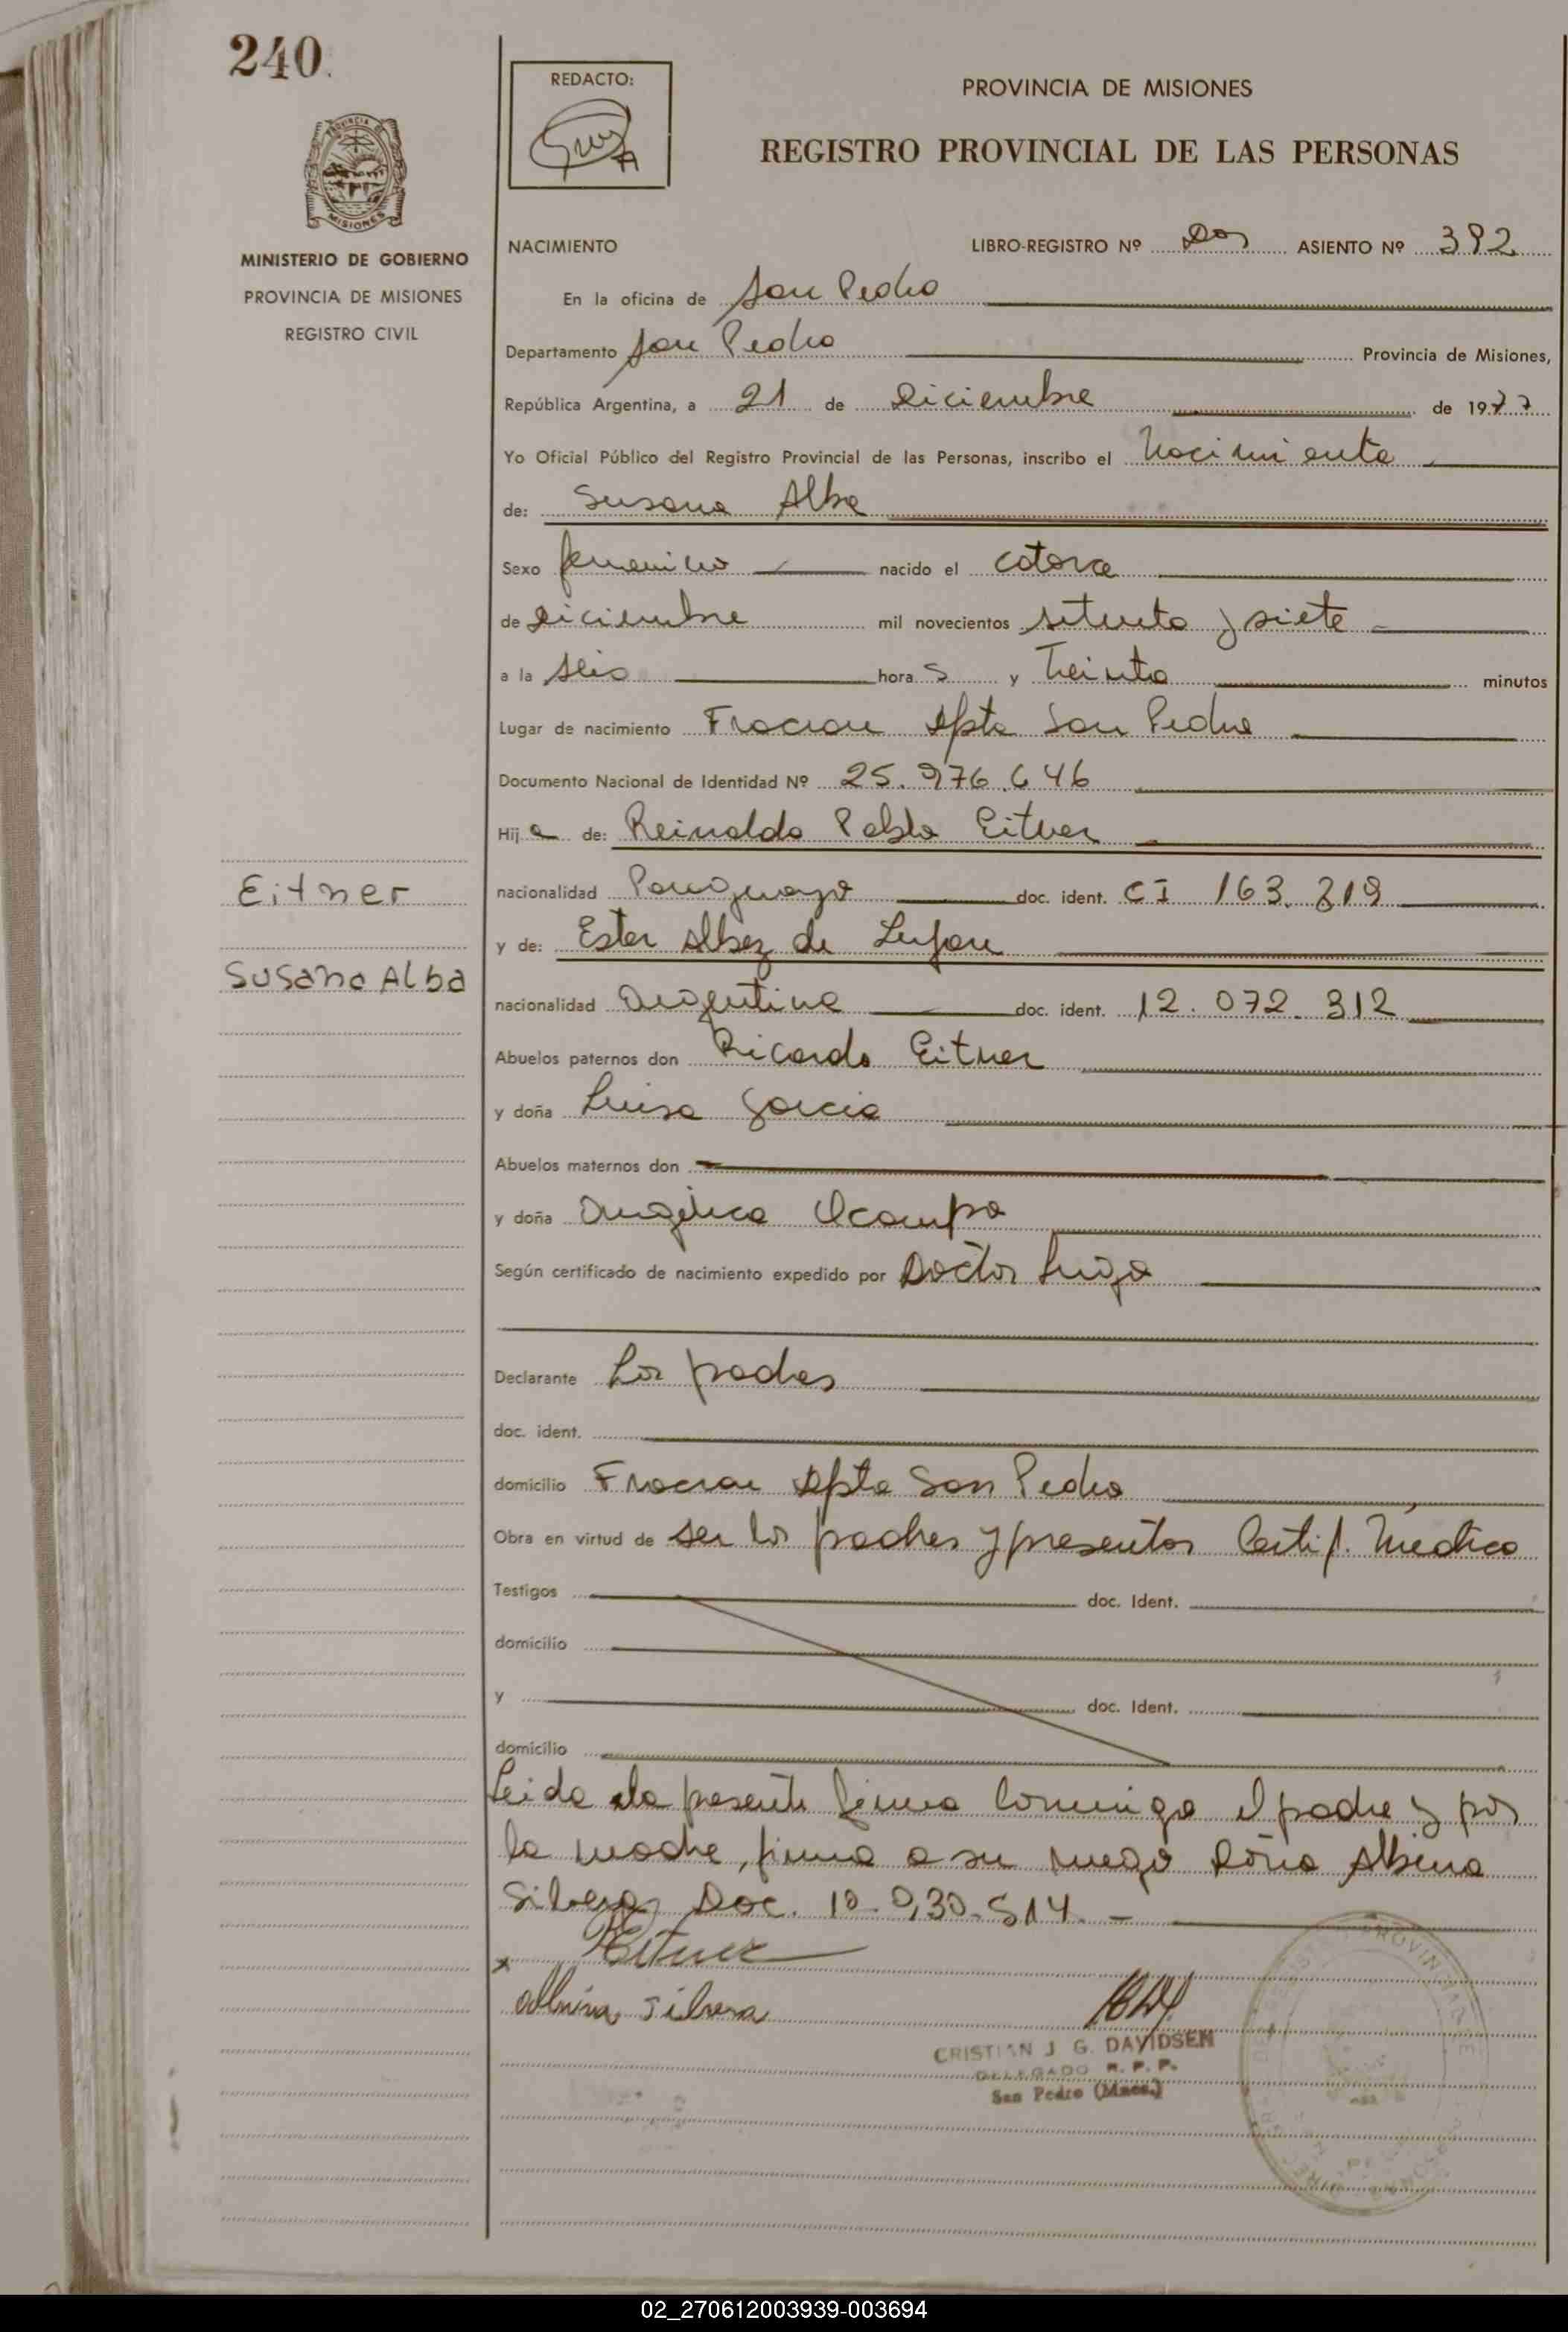 240.
REDACTO:
PROVINCIA DE MISIONES
REGISTRO PROVINCIAL DE LAS PERSONAS
MISIONES
MINISTERIO DE GOBIERNO
PROVINCIA DE MISIONES
REGISTRO CIVIL
NACIMIENTO LIBRO-REGISTRO Nº Dos ASIENTO Nº 392
En la oficina de San Pedro
Departamento San Pedro Provincia de Misiones,
República Argentina, a 21 de Diciembre de 1977
Yo Oficial Público del Registro Provincial de las Personas, inscribo el Nacimiento
de: Susana Alba
Sexo femenino nacido el catorce
de Diciembre mil novecientos setenta y siete
a la seis hora s y Treinta minutos
Lugar de nacimiento Fracran Dpto San Pedro
Documento Nacional de Identidad Nº 25.976.646
Hij a de: Reinaldo Pablo Eitner
Eitner
nacionalidad Paraguayo doc. ident. CI 163.219
y de: Ester Albez de Lujan
Susana Alba
nacionalidad Argentina doc. ident. 12.072.312
Abuelos paternos don Ricardo Eitner
y doña Luisa Garcia
Abuelos maternos don
y doña Angelica Ocampo
Según certificado de nacimiento expedido por Doctor
Declarante Los padres
doc. ident.
domicilio Fracran Dpto San Pedro
Obra en virtud de ser los padres y presentar Certif. Medico
Testigos doc. Ident.
domicilio
y doc. Ident.
domicilio
Leida la presente firma conmigo el padre y por
la madre, firma a su ruego Doña Albina
Silvera Doc. 10.030.514.-
x REitner
Albina Silvera
CRISTIAN J G. DAVIDSEN
DELEGADO R. P. P.
San Pedro (Mnes.)
02_270612003939-003694